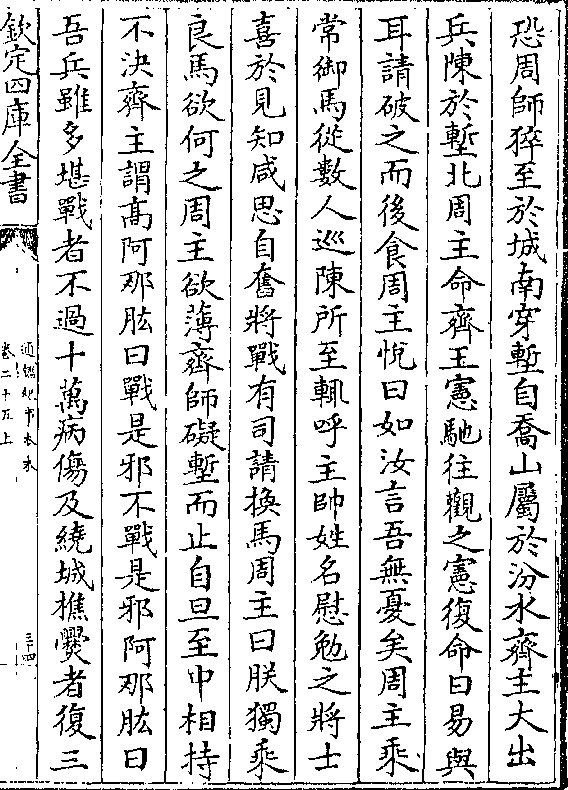 恐周師猝至於城南穿塹自喬山屬於汾水齊主大出
兵陳於塹北周主命齊王憲馳往觀之憲復命曰易與
耳請破之而後食周主恱曰如汝言吾無憂矣周主乘
常御馬從數人巡陳所至輒呼主帥姓名慰勉之將士
喜於見知咸思自奮將戰有司請換馬周主曰朕獨乘
良馬欲何之周主欲薄齊師礙塹而止自旦至中相持
不決齊主謂髙阿那肱曰戰是邪不戰是邪阿那肱曰
吾兵雖多堪戰者不過十萬病傷及繞城樵爨者復三
欽定四庫全書
通鑑紀事本末
卷二十五上
三十四